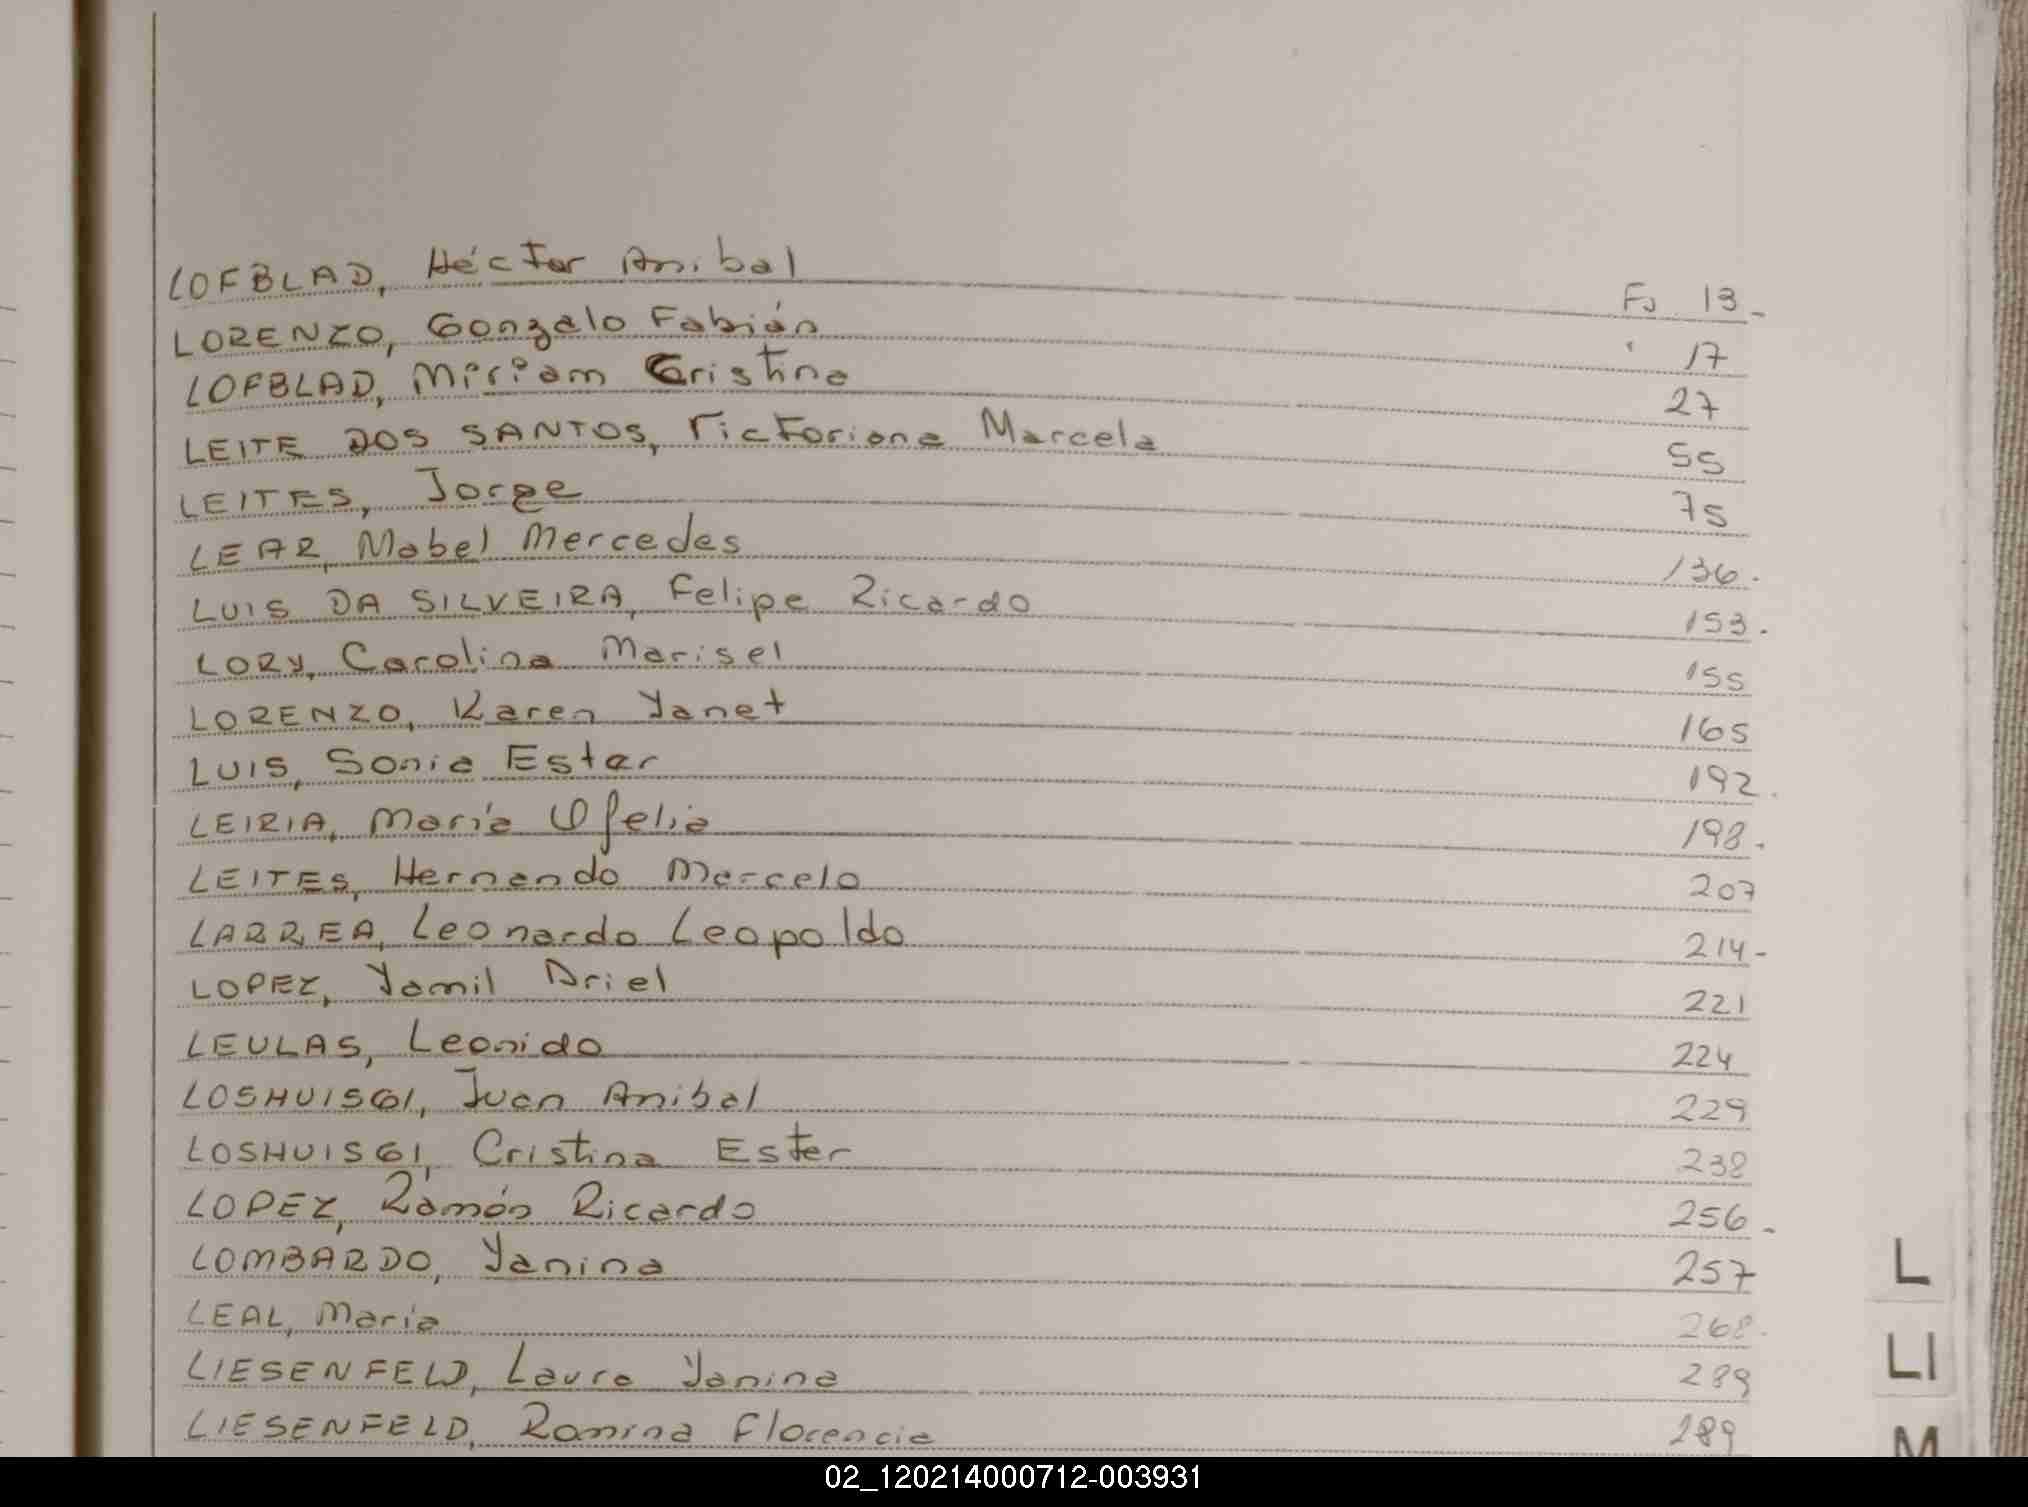 LOFBLAD, Héctor Anibal Fs 13.
LORENZO, Gonzalo Fabián 17
LOFBLAD, Miriam Cristina 27
LEITE DOS SANTOS, Victoriana Marcela 55
LEITES, Jorge 75
LEAR, Mabel Mercedes 136.
LUIS DA SILVEIRA, Felipe Ricardo 153.
LORY, Carolina Marisel 155
LORENZO, Karen Yanet 165
LUIS, Sonia Ester 192.
LEIRIA, María Ofelia 198.
LEITES, Hernando Marcelo 207
LARREA, Leonardo Leopoldo 214-
LOPEZ, Yamil Ariel 221
LEULAS, Leonido 224
LOSHUISGI, Juan Anibal 229
LOSHUISGI, Cristina Ester 238
LOPEZ, Rámón Ricardo 256.
LOMBARDO, Yanina 257
LEAL, María 268.
LIESENFELD, Laura Yanina 289
LIESENFELD, Romina Florencia 289
L
LI
M
02_120214000712-003931